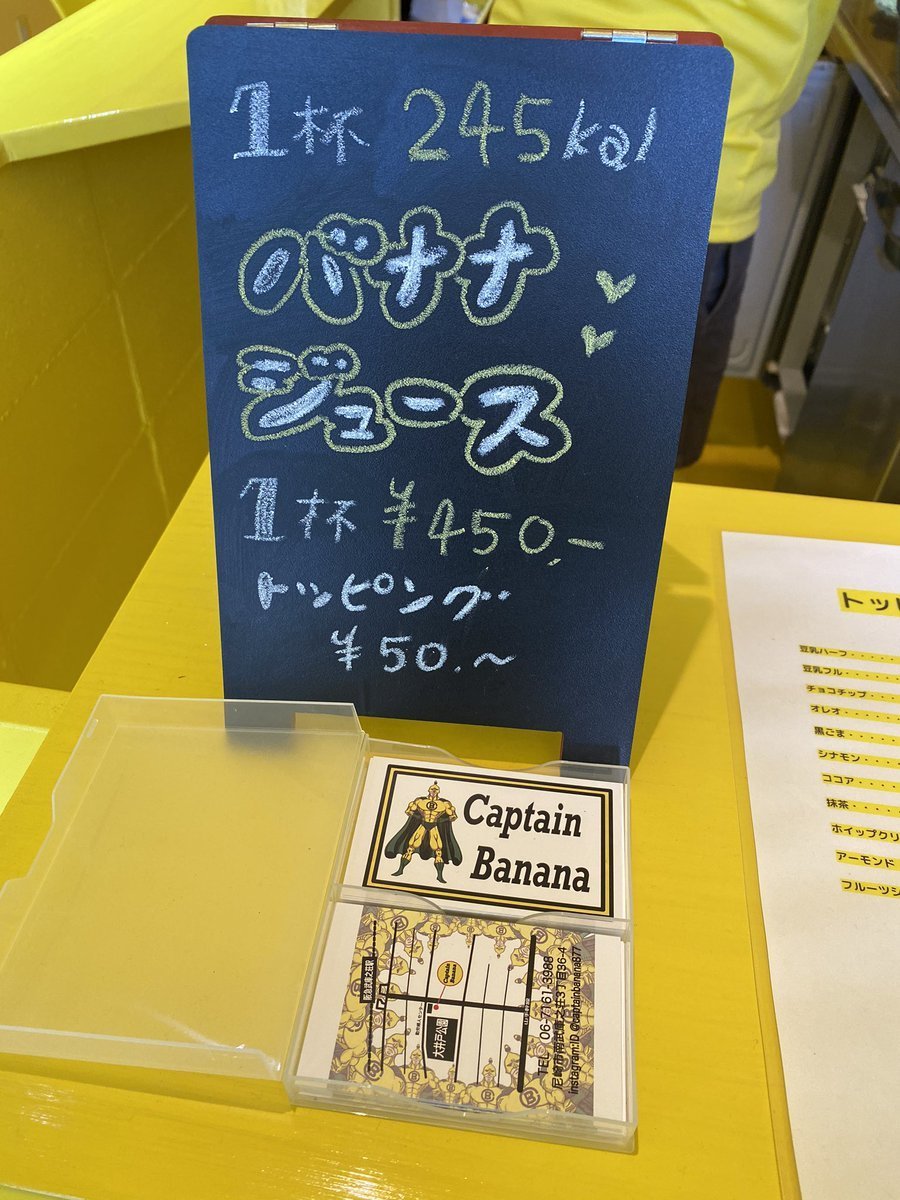 1杯 245kal
バナナ
ジュース
1杯 ¥450.-
トッピング
¥50.~
Captain
Banana
阪急武庫之荘駅
Captain
Banana
大井戸公園
TEL 06-7161-3988
尼崎市南武庫之荘3丁目36-4
instagram:ID @captainbanana87
トッ
豆乳ハーフ・・・・・
豆乳フル・・・・・
チョコチップ・・・・
オレオ・・・・・・
黒ごま・・・・・・
シナモン・・・・
ココア・・・・・
抹茶・・・・・・
ホイップクリ
アーモンド
フルーツシ